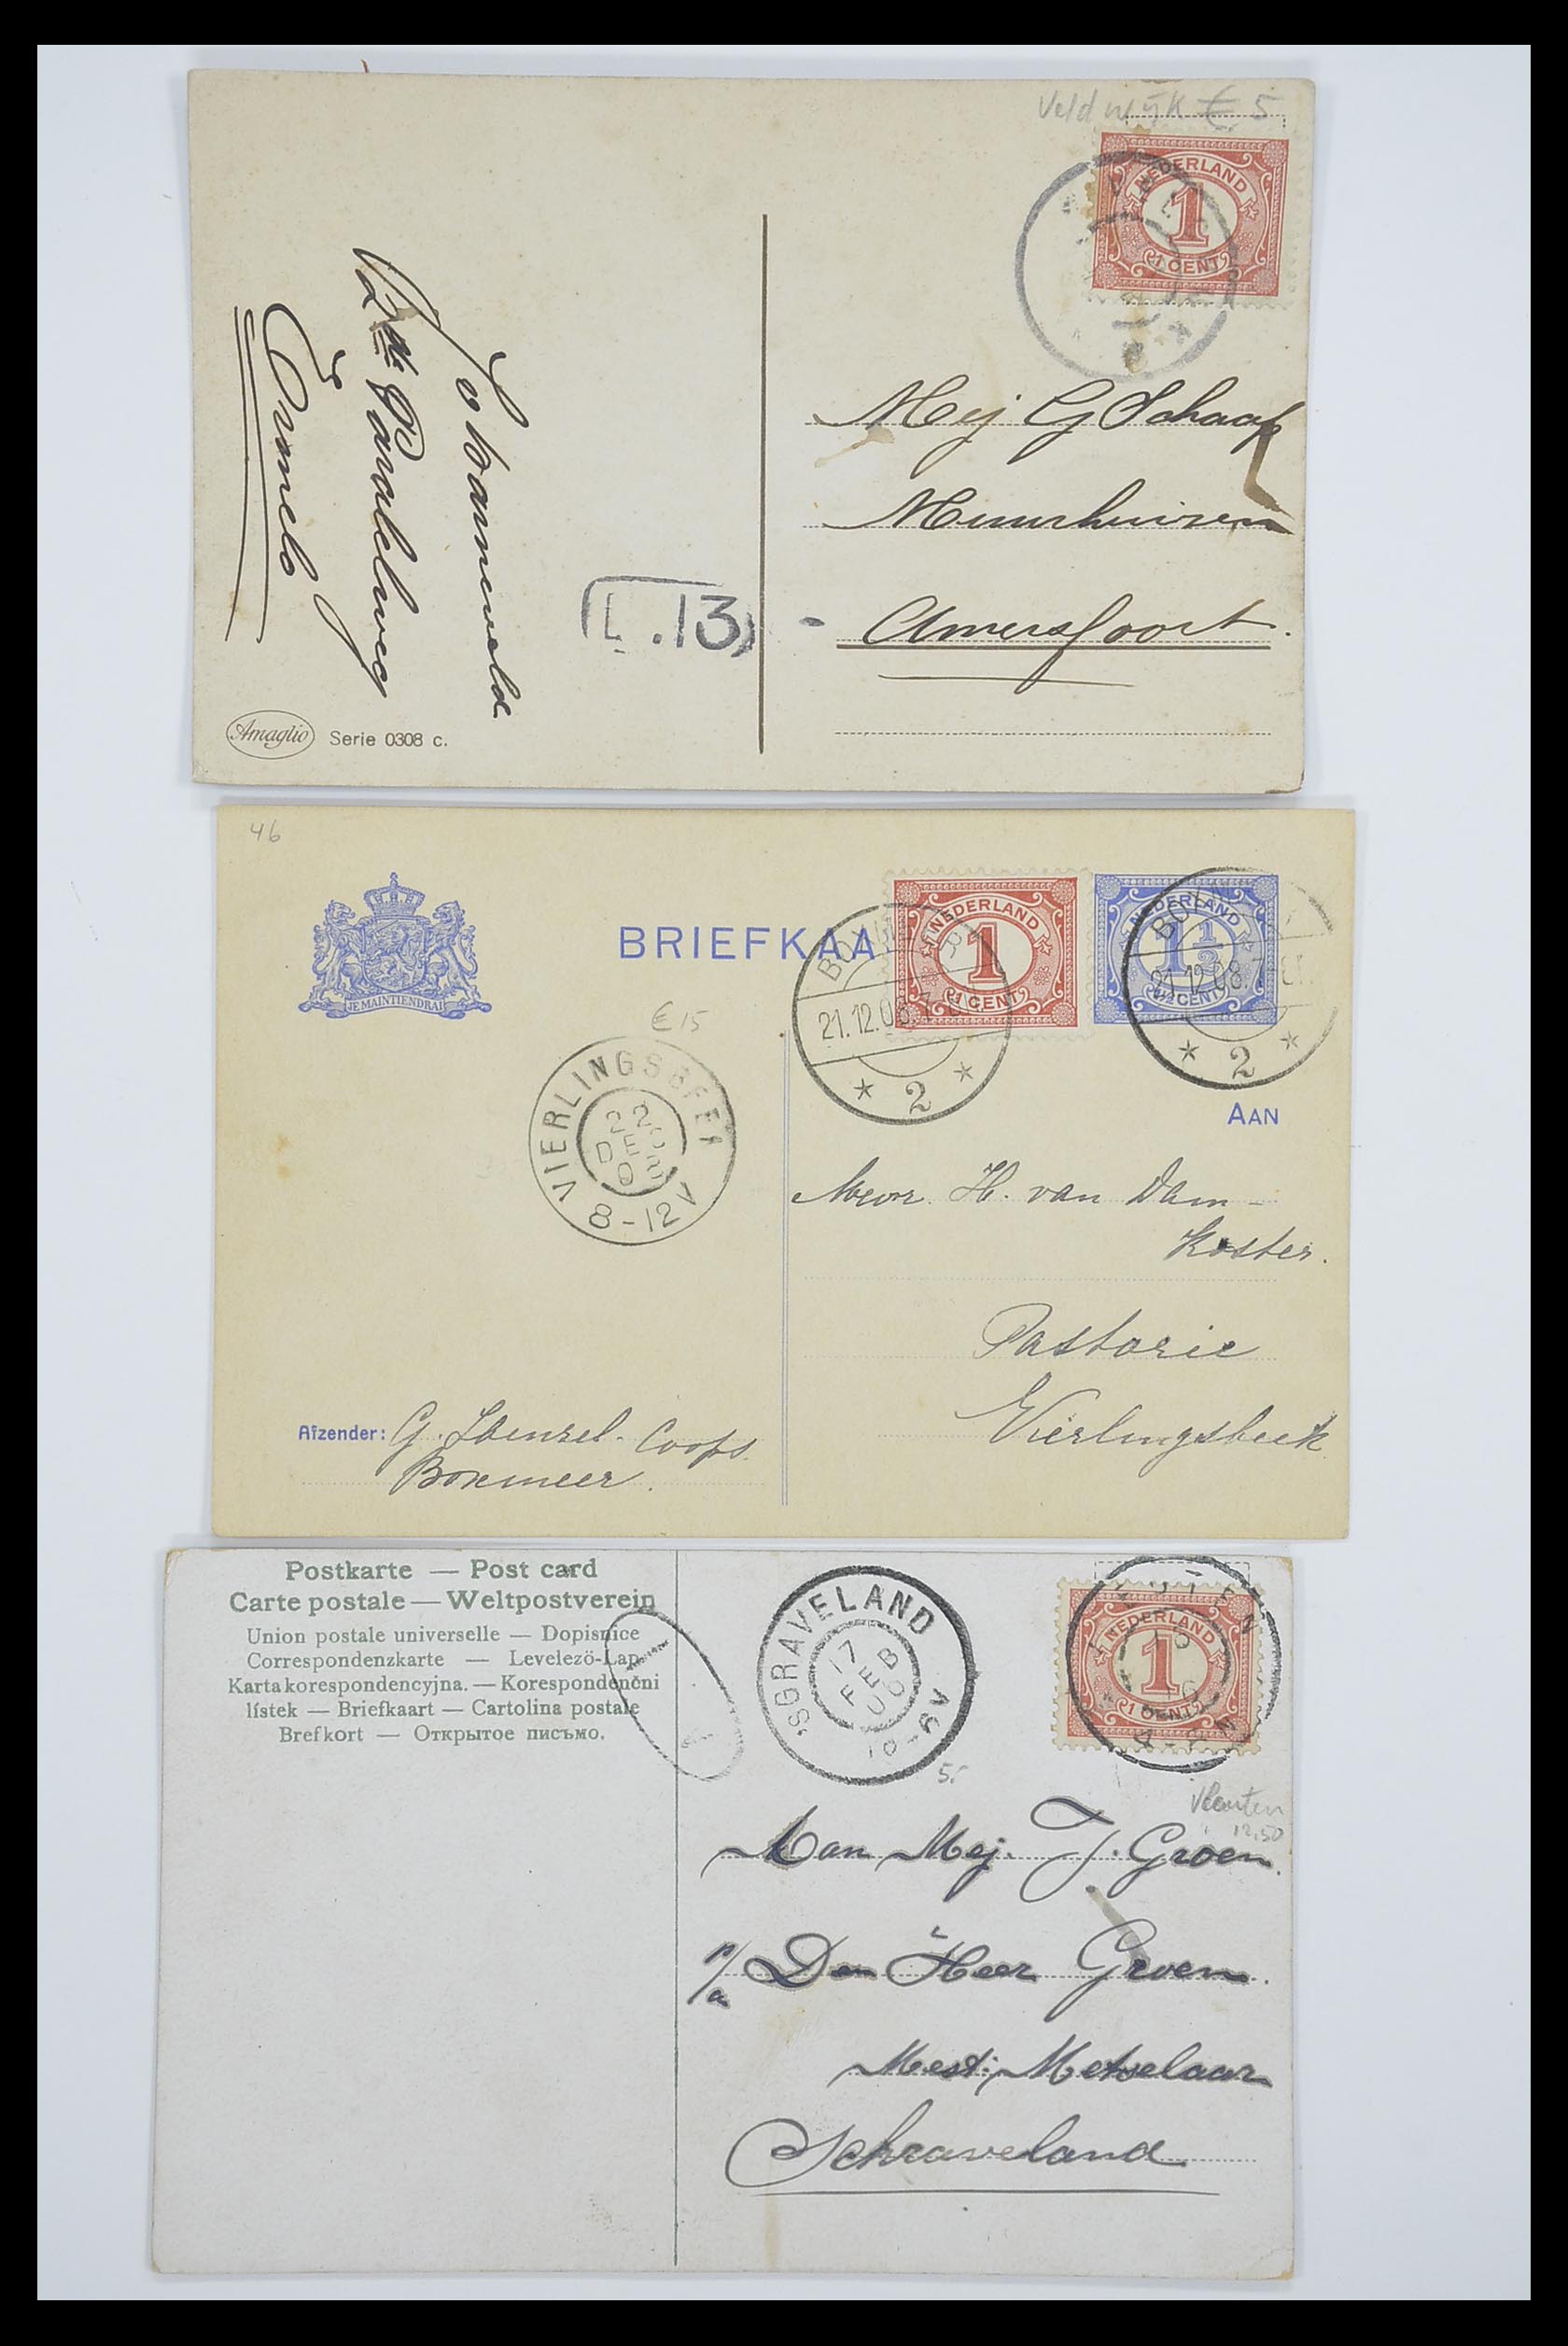 Veldwijk € 5
NEDERLAND
1
1 CENT
Mej G Schaap
Muurhuizen
Amersfoort.
Ermelo
L.13
Amaglio Serie 0308 c.
46
JE MAINTIENDRAI
BRIEFKAA
NEDERLAND
1
1 CENT
NEDERLAND
1½
CENT
21.12.08.7
* 2 *
21.12.08.7
* 2 *
€ 15
VIERLINGSBEEK
22
DEC
08
8-12V
AAN
Mevr. H. van Dam-
Koster.
Pastorie
Vierlingsbeek
Afzender: G. Coops.
Boxmeer.
Postkarte — Post card
Carte postale — Weltpostverein
Union postale universelle — Dopisnice
Correspondenzkarte — Levelezö-Lap
Karta korespondencyjna. — Korespondenční
lístek — Briefkaart — Cartolina postale
Brefkort — Открытое письмо.
1
'SGRAVELAND
17
FEB
06
10-9V
NEDERLAND
1
1 CENT
5.-
Vleuten
12,50
Aan Mej. J. Groen.
p/a Den Heer Groen.
Mest: Metselaar
Schraveland